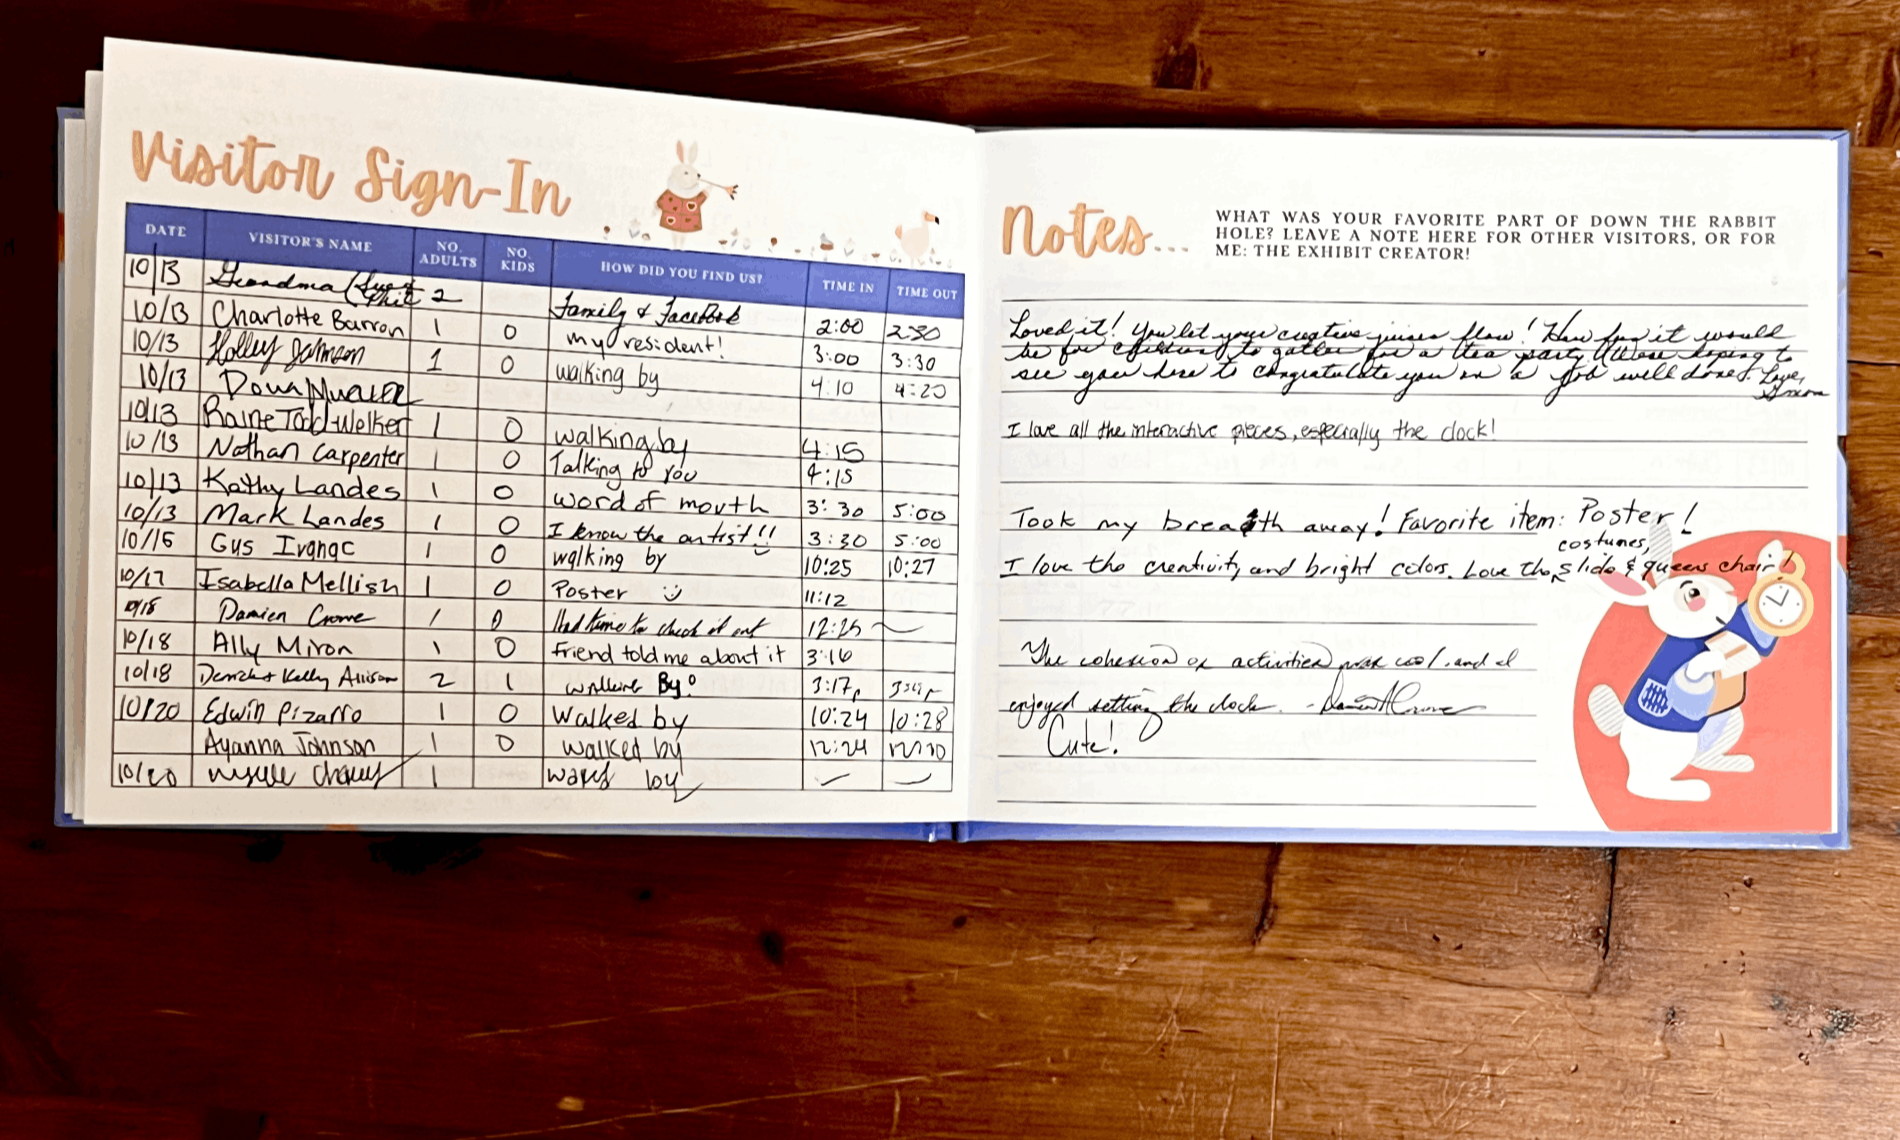 Visitor Sign-In
DATE VISITOR'S NAME NO. ADULTS NO. KIDS HOW DID YOU FIND US? TIME IN TIME OUT
10/13 Grandma 2 Family & Facebook 2:00 2:30
10/13 Charlotte Barron 1 0 my resident! 3:00 3:30
10/13 Holley 1 0 walking by 4:10 4:20
10/13
10/13 Raine Todd-Welker 1 0 walking by 4:15
10/13 Nathan Carpenter 1 0 Talking to you 4:15
10/13 Kathy Landes 1 0 word of mouth 3:30 5:00
10/13 Mark Landes 1 0 I know the artist!! 3:30 5:00
10/15 Gus 1 0 walking by 10:25 10:27
10/17 Isabella Mellish 1 0 Poster 11:12
10/18 Damien Crowe 1 0 Had time to check it out 12:25
10/18 Ally Miron 1 0 Friend told me about it 3:16
10/18 Kelly Allison 2 1 walking By! 3:17p
10/20 Edwin Pizarro 1 0 Walked by 10:24 10:28
Ayanna Johnson 1 0 walked by 12:24
10/20 1 by
Notes...
WHAT WAS YOUR FAVORITE PART OF DOWN THE RABBIT
HOLE? LEAVE A NOTE HERE FOR OTHER VISITORS, OR FOR
ME: THE EXHIBIT CREATOR!
Loved it! You let your creative juices flow! How fun it would
be for children to gather for a tea party. Was hoping to
see you here to congratulate you on a job well done! Love,
I love all the interactive pieces, especially the clock!
Took my breath away! Favorite item: Poster!
costumes,
I love the creativity and bright colors. Love the slide & queens chair!
The cohesion of activities was cool, and I
enjoyed setting the clock. - Damien Crowe
Cute!